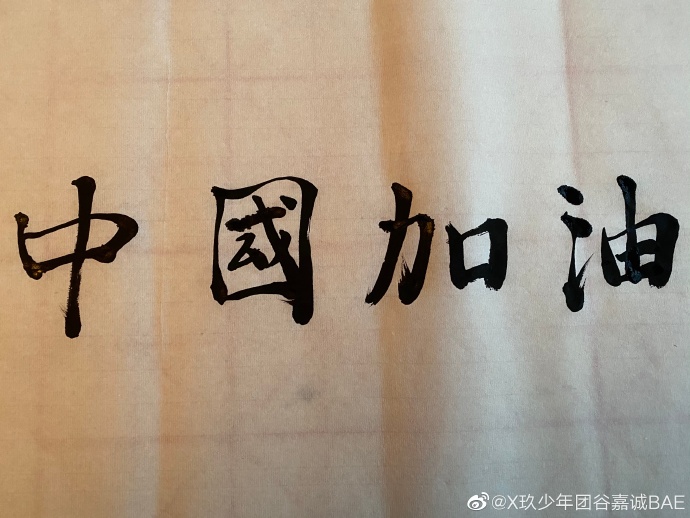 中國加油
@X玖少年团谷嘉诚BAE